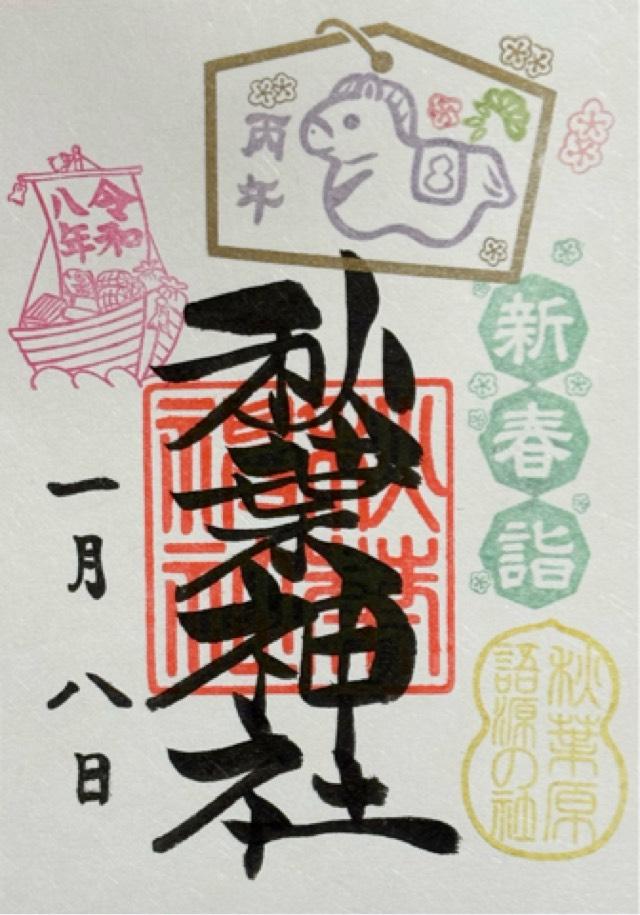 丙午
新
春
詣
秋葉原
語源の社
秋葉神社
秋葉
神社
令和
八年
一月八日